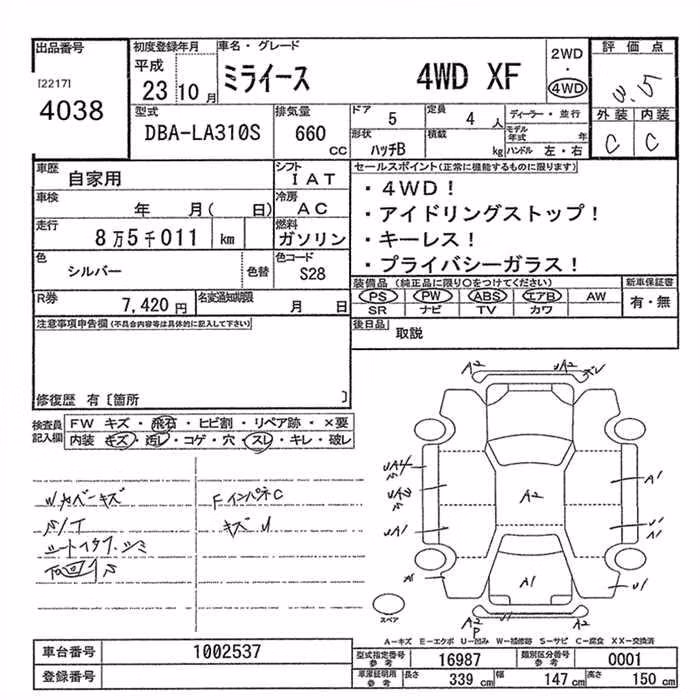 出品番号 初度登録年月 車名・グレード 評価点
[2217] 平成
4038 23 10月 ミライース 4WD XF 2WD・4WD 3.5
型式 排気量 ドア 5 定員 4人 ディーラー・並行 外装 内装
DBA-LA310S 660CC 形状 ハッチB 積載 kg モデル年式 年 ハンドル 左・右 C C
車歴 自家用 シフト IAT セールスポイント(正常に機能するものに限ります)
車検 年 月( 日) 冷房 AC ・4WD!
走行 8万5千011 km 燃料 ガソリン ・アイドリングストップ!
・キーレス!
色 シルバー 色替 色コード S28 ・プライバシーガラス!
装備品(純正品に限り○をつけてください) 新車保証書
R券 7,420円 名変通知期限 月 日 PS PW ABS エアB AW 有・無
SR ナビ TV カワ
注意事項申告欄(不具合内容等は具体的に記入して下さい) 後日品 取説
修復歴 有〔箇所 〕
検査員記入欄 FW キズ・飛石・ヒビ割・リペア跡・×要
内装 キズ・汚レ・コゲ・穴・スレ・キレ・破レ
A2 A2
A2
A1
A1
A1
U1
スペア
A2
A-キズ E-エクボ U-凹み W-補修跡 S-サビ C-腐食 XX-交換済
車台番号 1002537 型式指定番号 参考 16987 類別区分番号 参考 0001
登録番号 車庫証明用 参考 長さ 339 cm 幅 147 cm 高さ 150 cm